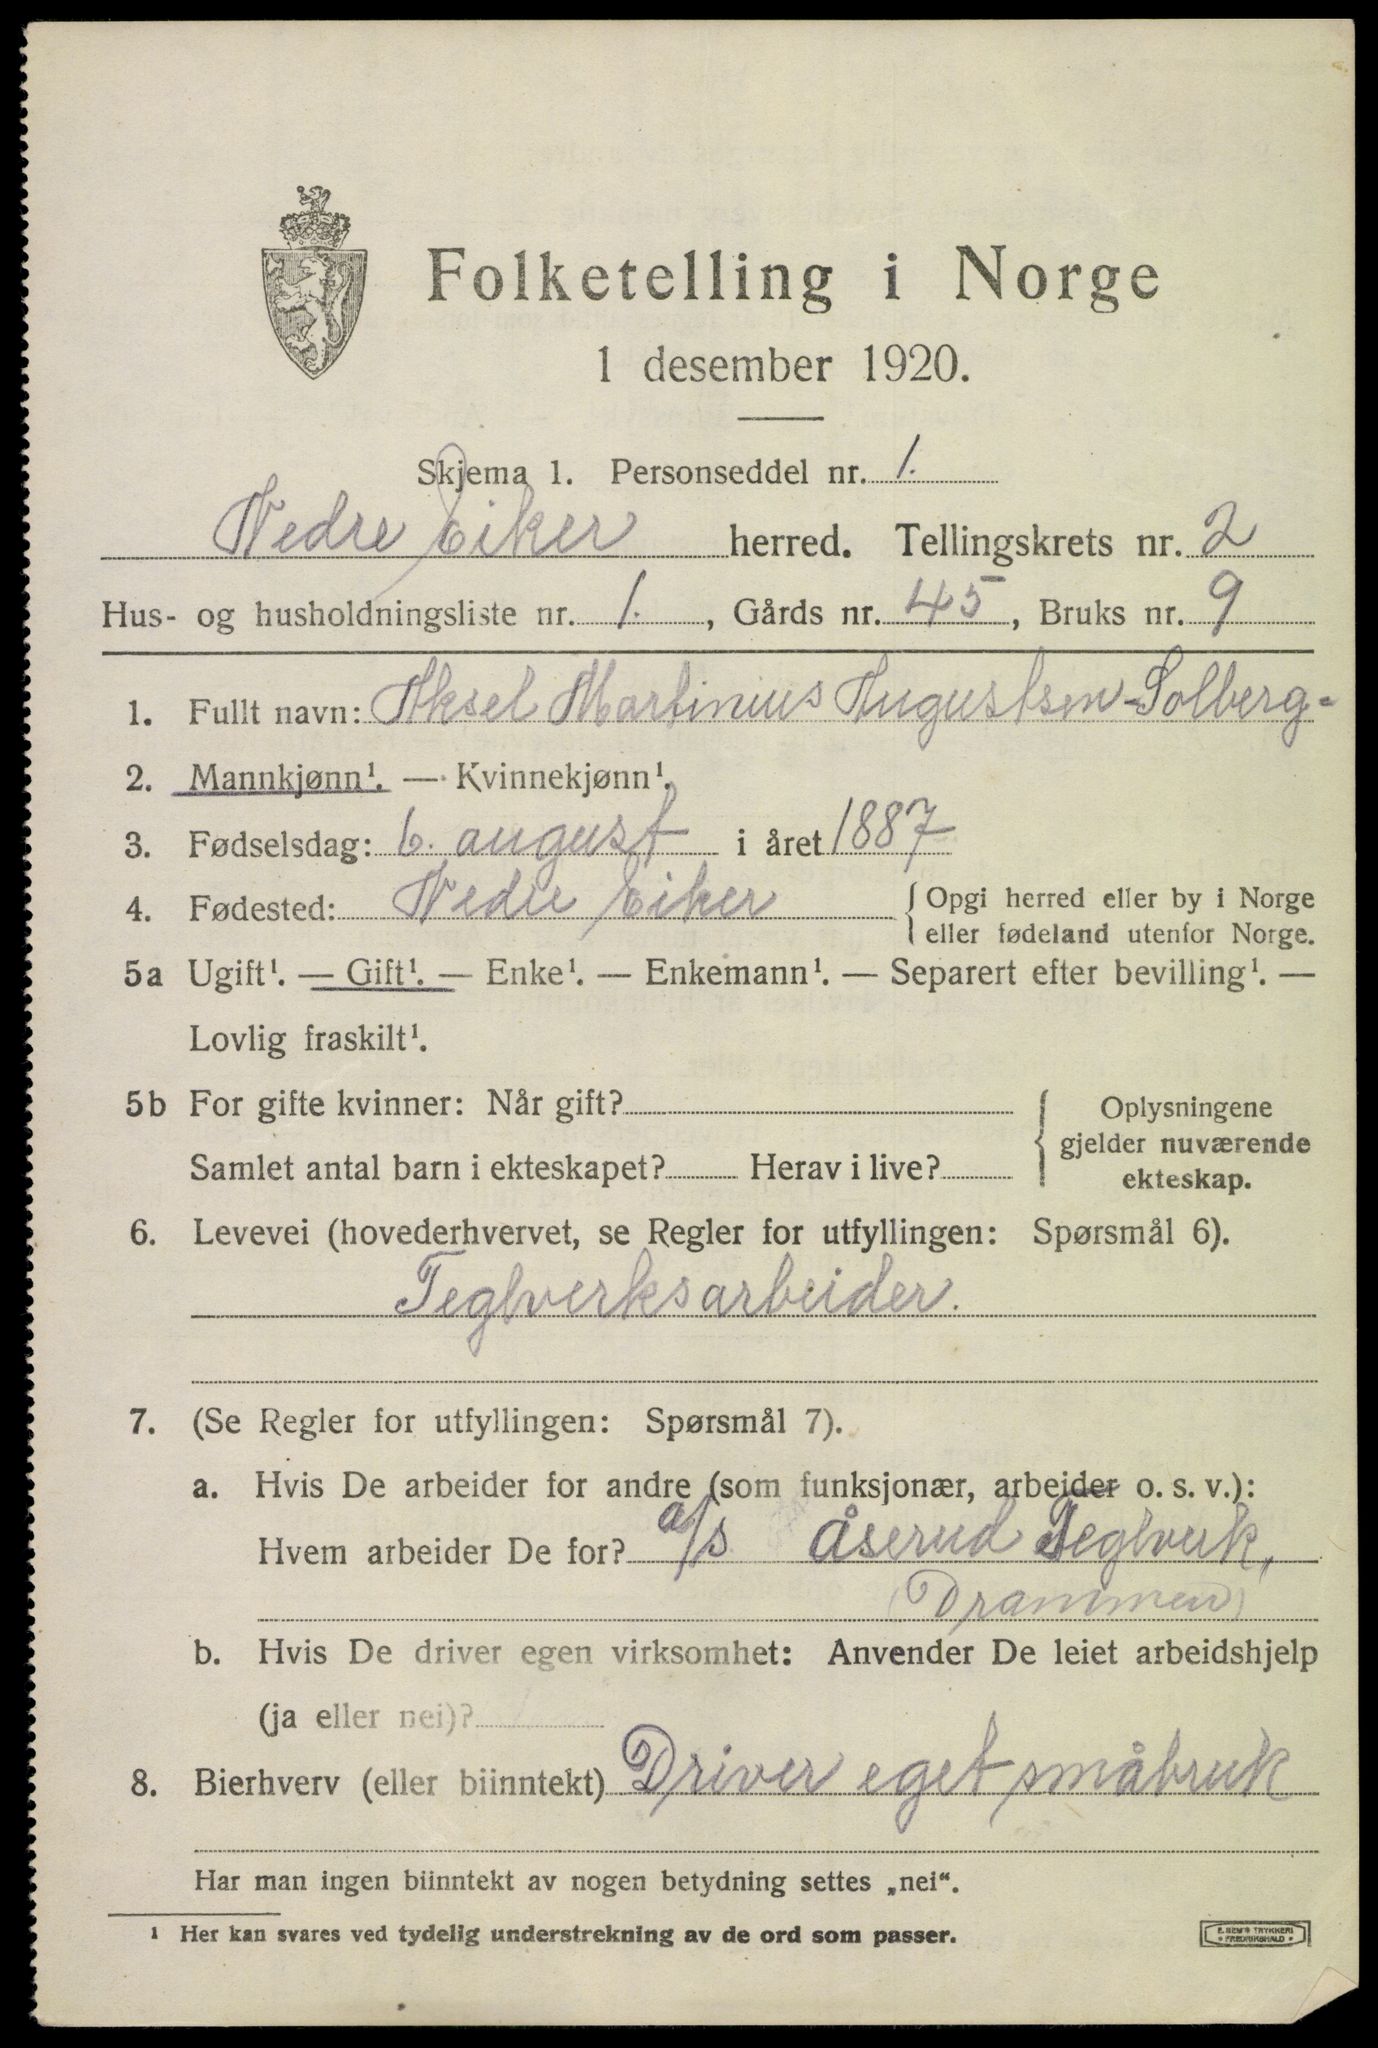 Folketelling i Norge
1 desember 1920.
Skjema 1. Personseddel nr. 1.
Nedre Eiker herred. Tellingskrets nr. 2
Hus- og husholdningsliste nr. 1., Gårds nr. 45, Bruks nr. 9
1. Fullt navn: Aksel Martinius Augustsen-Solberg-
2. Mannkjønn¹. — Kvinnekjønn¹.
3. Fødselsdag: 6. august i året 1887
4. Fødested: Nedre Eiker { Opgi herred eller by i Norge
eller fødeland utenfor Norge.
5a Ugift¹. — Gift¹. — Enke¹. — Enkemann¹. — Separert efter bevilling¹. —
Lovlig fraskilt¹.
5b For gifte kvinner: Når gift? { Oplysningene
gjelder nuværende
Samlet antal barn i ekteskapet? Herav i live? ekteskap.
6. Levevei (hovederhvervet, se Regler for utfyllingen: Spørsmål 6).
Teglverksarbeider.
7. (Se Regler for utfyllingen: Spørsmål 7).
a. Hvis De arbeider for andre (som funksjonær, arbeider o. s. v.):
Hvem arbeider De for? a/s Åserud Teglverk,
(Drammen)
b. Hvis De driver egen virksomhet: Anvender De leiet arbeidshjelp
(ja eller nei)?
8. Bierhverv (eller biinntekt) Driver eget småbruk
Har man ingen biinntekt av nogen betydning settes „nei“.
¹ Her kan svares ved tydelig understrekning av de ord som passer.
E. SEM'S TRYKKERI
• FREDRIKSHALD •